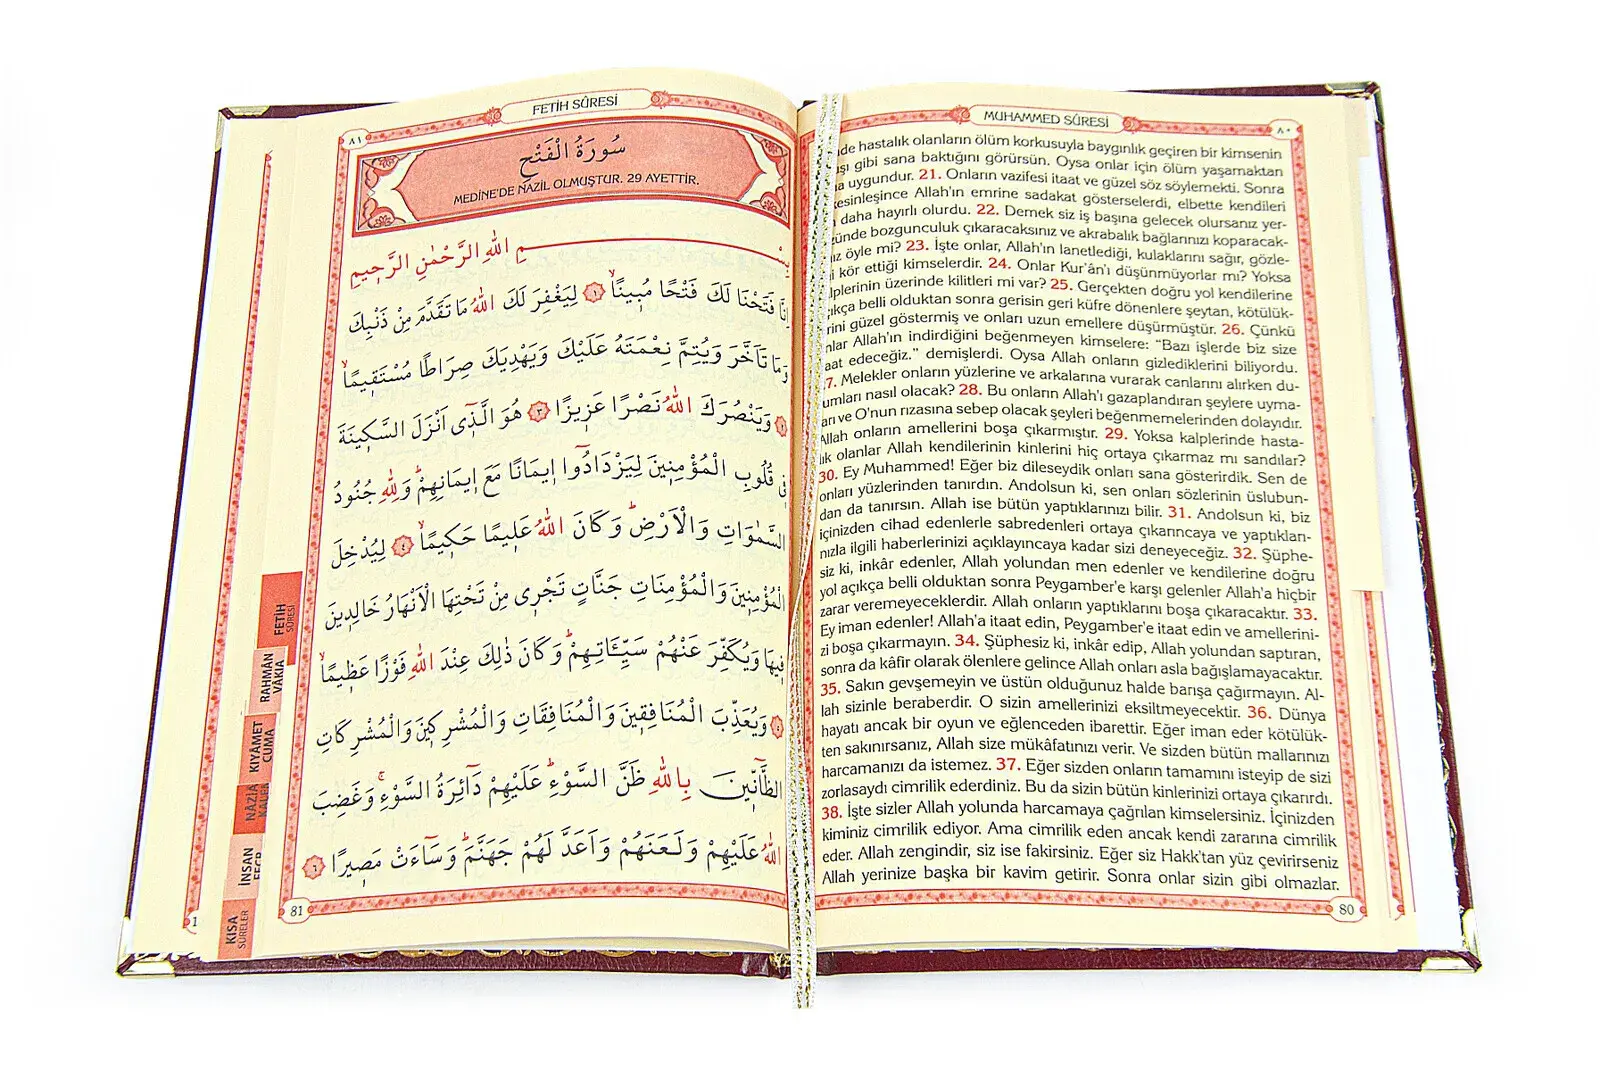 MUHAMMED SÛRESİ
٨٠
de hastalık olanların ölüm korkusuyla baygınlık geçiren bir kimsenin
şı gibi sana baktığını görürsün. Oysa onlar için ölüm yaşamaktan
uygundur. 21. Onların vazifesi itaat ve güzel söz söylemekti. Sonra
kesinleşince Allah'ın emrine sadakat gösterselerdi, elbette kendileri
daha hayırlı olurdu. 22. Demek siz iş başına gelecek olursanız yer-
ünde bozgunculuk çıkaracaksınız ve akrabalık bağlarınızı koparacak-
z öyle mi? 23. İşte onlar, Allah'ın lanetlediği, kulaklarını sağır, gözle-
i kör ettiği kimselerdir. 24. Onlar Kur'ân'ı düşünmüyorlar mı? Yoksa
alplerinin üzerinde kilitleri mi var? 25. Gerçekten doğru yol kendilerine
çıkça belli olduktan sonra gerisin geri küfre dönenlere şeytan, kötülük-
rini güzel göstermiş ve onları uzun emellere düşürmüştür. 26. Çünkü
nlar Allah'ın indirdiğini beğenmeyen kimselere: “Bazı işlerde biz size
aat edeceğiz.” demişlerdi. Oysa Allah onların gizlediklerini biliyordu.
7. Melekler onların yüzlerine ve arkalarına vurarak canlarını alırken du-
umları nasıl olacak? 28. Bu onların Allah'ı gazaplandıran şeylere uyma-
arı ve O'nun rızasına sebep olacak şeyleri beğenmemelerinden dolayıdır.
Allah onların amellerini boşa çıkarmıştır. 29. Yoksa kalplerinde hasta-
lık olanlar Allah kendilerinin kinlerini hiç ortaya çıkarmaz mı sandılar?
30. Ey Muhammed! Eğer biz dileseydik onları sana gösterirdik. Sen de
onları yüzlerinden tanırdın. Andolsun ki, sen onları sözlerinin üslubun-
dan da tanırsın. Allah ise bütün yaptıklarınızı bilir. 31. Andolsun ki, biz
içinizden cihad edenlerle sabredenleri ortaya çıkarıncaya ve yaptıkları-
nızla ilgili haberlerinizi açıklayıncaya kadar sizi deneyeceğiz. 32. Şüphe-
siz ki, inkâr edenler, Allah yolundan men edenler ve kendilerine doğru
yol açıkça belli olduktan sonra Peygamber'e karşı gelenler Allah'a hiçbir
zarar veremeyeceklerdir. Allah onların yaptıklarını boşa çıkaracaktır. 33.
Ey iman edenler! Allah'a itaat edin, Peygamber'e itaat edin ve amellerini-
zi boşa çıkarmayın. 34. Şüphesiz ki, inkâr edip, Allah yolundan saptıran,
sonra da kâfir olarak ölenlere gelince Allah onları asla bağışlamayacaktır.
35. Sakın gevşemeyin ve üstün olduğunuz halde barışa çağırmayın. Al-
lah sizinle beraberdir. O sizin amellerinizi eksiltmeyecektir. 36. Dünya
hayatı ancak bir oyun ve eğlenceden ibarettir. Eğer iman eder kötülük-
ten sakınırsanız, Allah size mükâfatınızı verir. Ve sizden bütün mallarınızı
harcamanızı da istemez. 37. Eğer sizden onların tamamını isteyip de sizi
zorlasaydı cimrilik ederdiniz. Bu da sizin bütün kinlerinizi ortaya çıkarırdı.
38. İşte sizler Allah yolunda harcamaya çağrılan kimselersiniz. İçinizden
kiminiz cimrilik ediyor. Ama cimrilik eden ancak kendi zararına cimrilik
eder. Allah zengindir, siz ise fakirsiniz. Eğer siz Hakk'tan yüz çevirirseniz
Allah yerinize başka bir kavim getirir. Sonra onlar sizin gibi olmazlar.
80
FETİH SÛRESİ
٨١
سُورَةُ الْفَتْحِ
MEDİNE'DE NAZİL OLMUŞTUR. 29 AYETTİR.
بِسْمِ اللّٰهِ الرَّحْمٰنِ الرَّحِيمِ
اِنَّا فَتَحْنَا لَكَ فَتْحًا مُبِينًاۙ ١ لِيَغْفِرَ لَكَ اللّٰهُ مَا تَقَدَّمَ مِنْ ذَنْبِكَ
وَمَا تَاَخَّرَ وَيُتِمَّ نِعْمَتَهُ عَلَيْكَ وَيَهْدِيَكَ صِرَاطًا مُسْتَقِيمًاۙ
٢ وَيَنْصُرَكَ اللّٰهُ نَصْرًا عَزِيزًا ٣ هُوَ الَّذِى اَنْزَلَ السَّكِينَةَ
فِى قُلُوبِ الْمُؤْمِنِينَ لِيَزْدَادُٓوا اِيمَانًا مَعَ اِيمَانِهِمْۜ وَلِلّٰهِ جُنُودُ
السَّمٰوَاتِ وَالْاَرْضِۜ وَكَانَ اللّٰهُ عَلِيمًا حَكِيمًاۙ ٤ لِيُدْخِلَ
الْمُؤْمِنِينَ وَالْمُؤْمِنَاتِ جَنَّاتٍ تَجْرِى مِنْ تَحْتِهَا الْاَنْهَارُ خَالِدِينَ
فِيهَا وَيُكَفِّرَ عَنْهُمْ سَيِّـَٔاتِهِمْۜ وَكَانَ ذٰلِكَ عِنْدَ اللّٰهِ فَوْزًا عَظِيمًاۙ
٥ وَيُعَذِّبَ الْمُنَافِقِينَ وَالْمُنَافِقَاتِ وَالْمُشْرِكِينَ وَالْمُشْرِكَاتِ
الظَّٓانِّينَ بِاللّٰهِ ظَنَّ السَّوْءِۜ عَلَيْهِمْ دَٓائِرَةُ السَّوْءِۚ وَغَضِبَ
اللّٰهُ عَلَيْهِمْ وَلَعَنَهُمْ وَاَعَدَّ لَهُمْ جَهَنَّمَۜ وَسَٓاءَتْ مَصِيرًا ٦
81
FETİH
SÛRESİ
RAHMÂN
VÂKIA
KIYÂMET
CUMA
İNSAN
KISA
SÛRELER